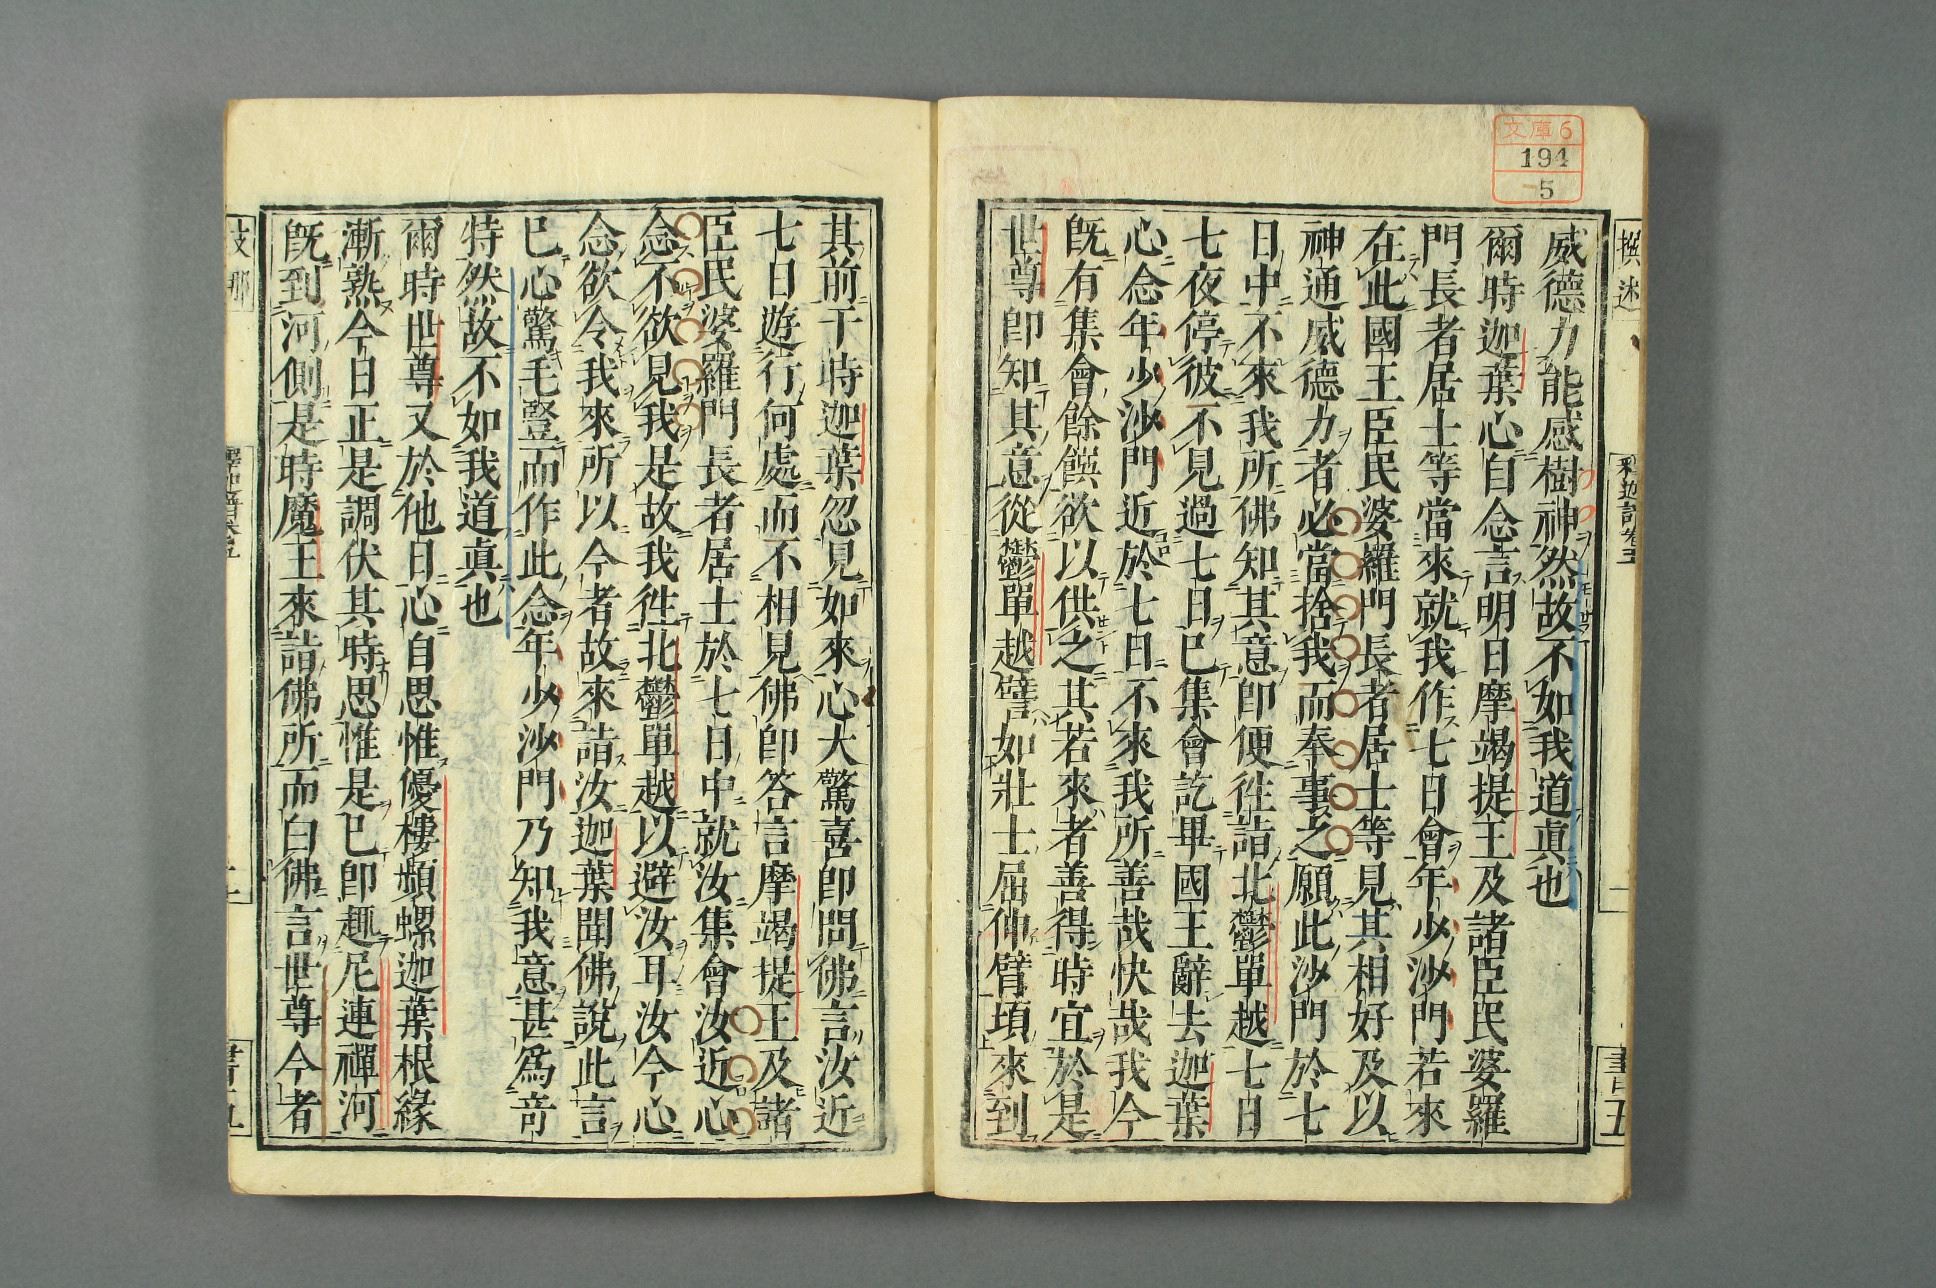 文庫6
194
5
撰述
釈迦譜卷五
一
書五
威德力能感樹神然故不如我道眞也
爾時迦葉心自念言明日摩竭提王及諸臣民婆羅
門長者居士等當來就我作七日會年少沙門若來
在此國王臣民婆羅門長者居士等見其相好及以
神通威德力者必當捨我而奉事之願此沙門於七
日中不來我所佛知其意即便徃詣北鬱單越七日
七夜停彼不見過七日已集會訖畢國王辭去迦葉
心念年少沙門近於七日不來我所善哉快哉我今
旣有集會餘饌欲以供之其若來者善得時宜於是
世尊即知其意從鬱單越譬如壯士屈伸臂頃來到
其前于時迦葉忽見如來心大驚喜即問佛言汝近
七日遊行何處而不相見佛即答言摩竭提王及諸
臣民婆羅門長者居士於七日中就汝集會汝近心
念不欲見我是故我徃北鬱單越以避汝耳汝今心
念欲令我來所以今者故來詣汝迦葉聞佛說此言
已心驚毛豎而作此念年少沙門乃知我意甚爲奇
特然故不如我道眞也
爾時世尊又於他日心自思惟優樓頻螺迦葉根緣
漸熟今日正是調伏其時思惟是已即趣尼連禪河
旣到河側是時魔王來詣佛所而白佛言世尊今者
支那